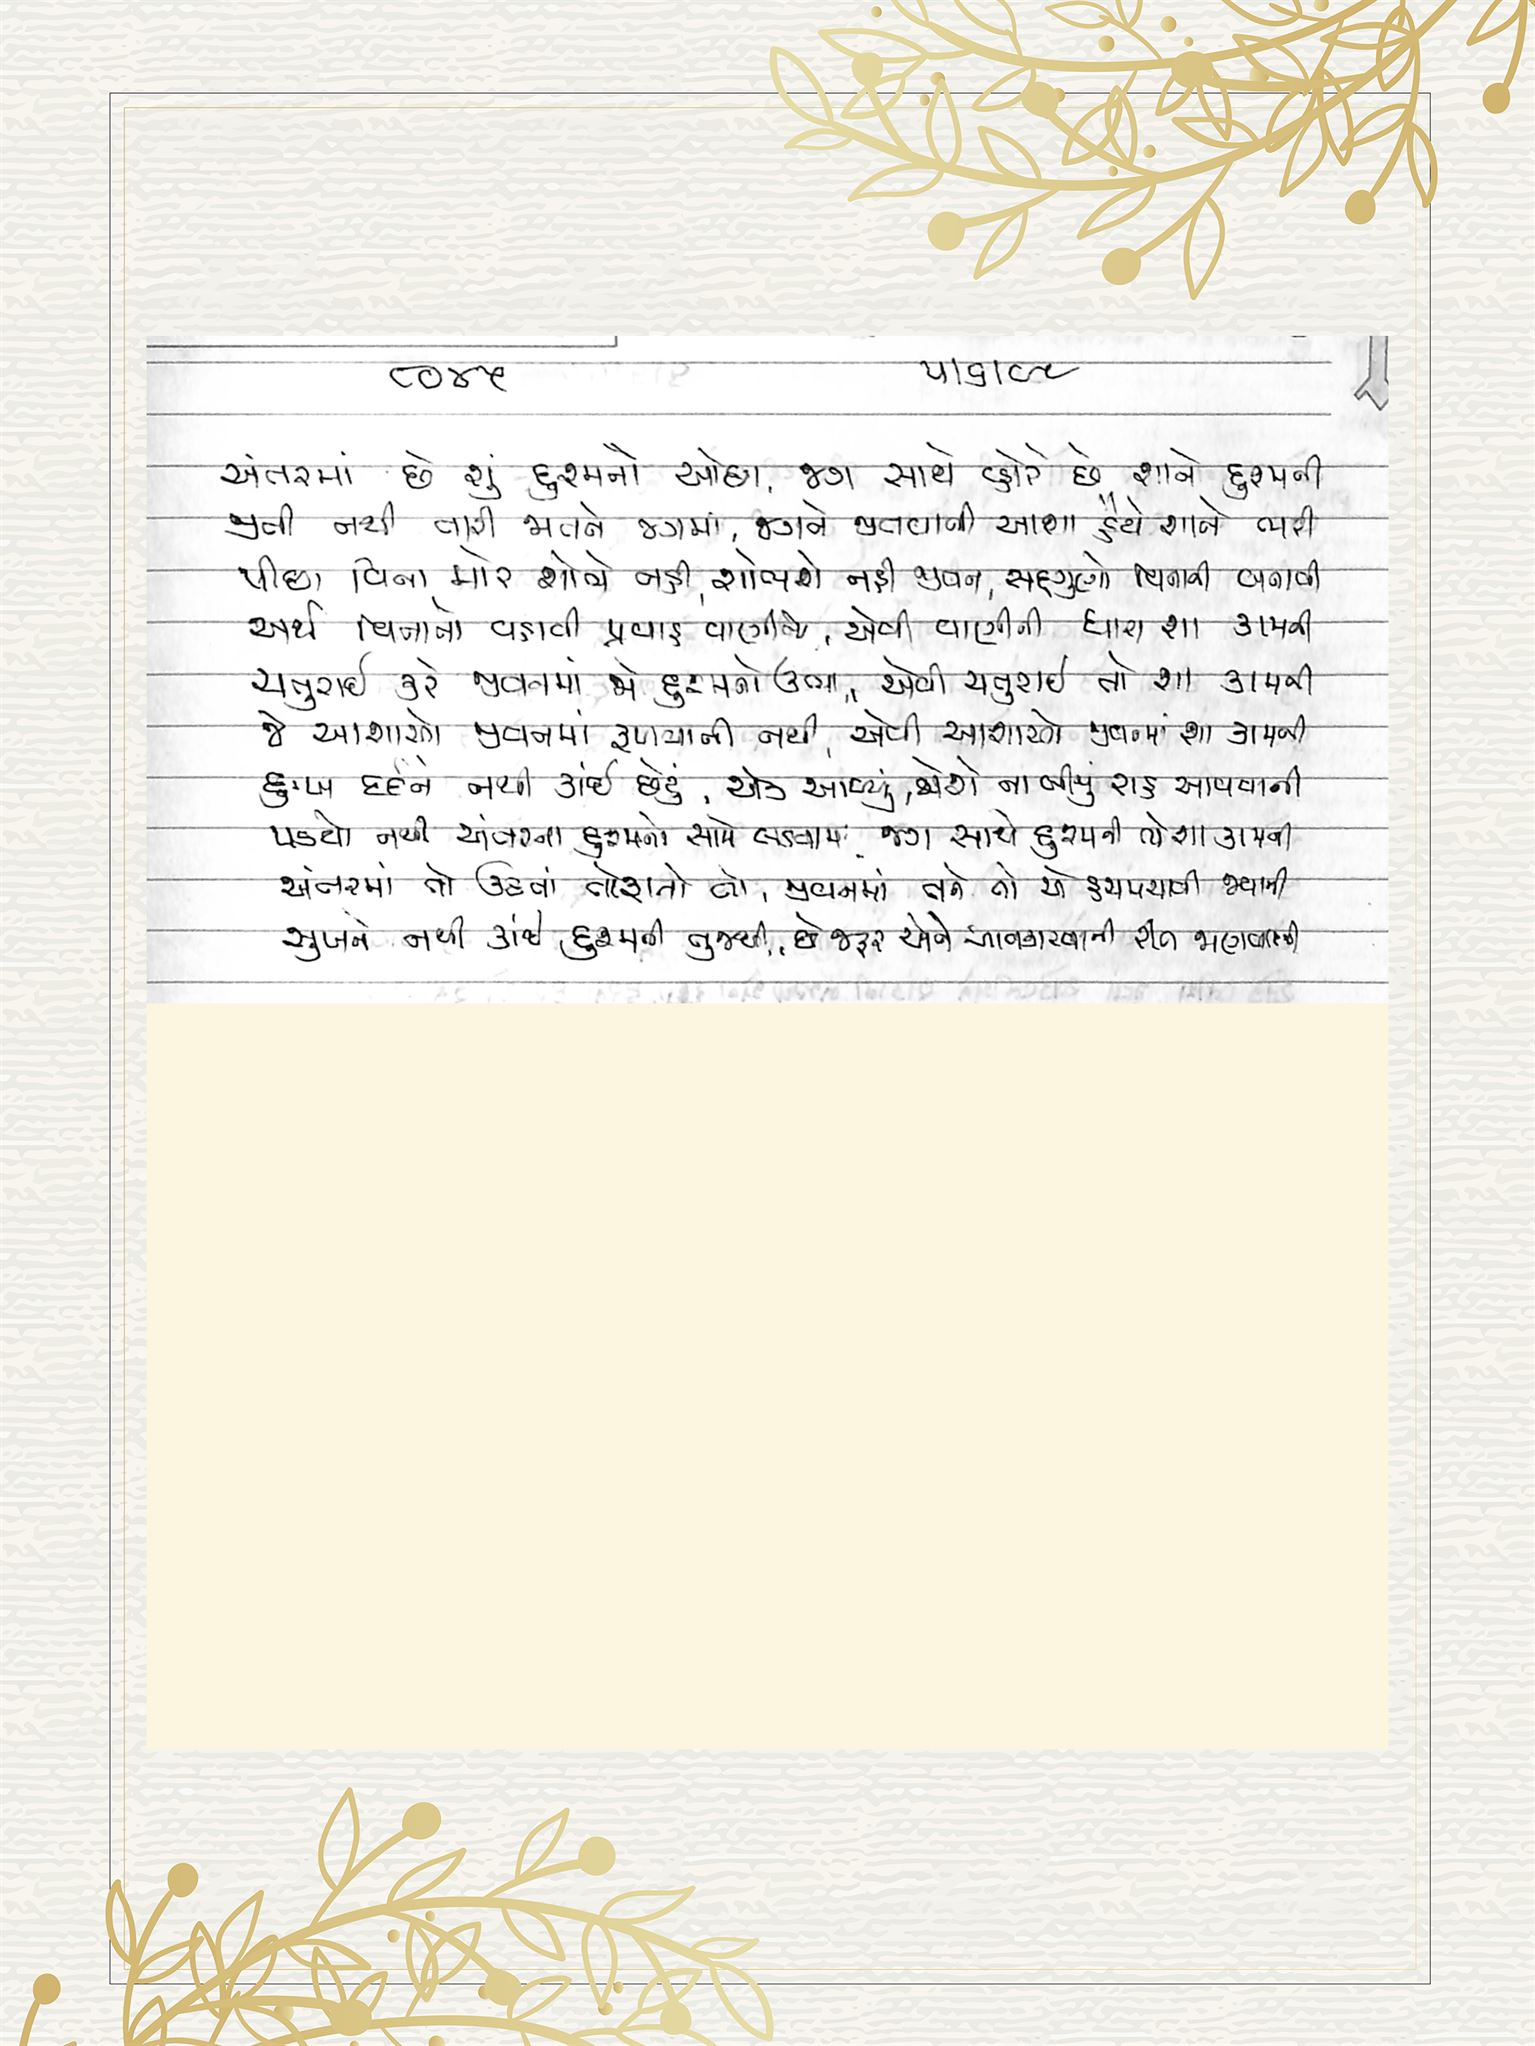 ૮૦૪૫
અંતરમાં છે શું દુશ્મનો ઓછા, જગ સાથે વ્હોરે છે શાને દુશ્મની
જીતી નથી તારી જાતને જગમાં, જગને જીતવાની આશા હૈયે શાને ભરી
પીંછા વિના મોર શોભે નહીં, શોભશે નહીં જીવન, સદ્ગુણો વિનાની બનાવી
અર્થ વિનાનો વહાવી પ્રવાહ વાણીનો, એવી વાણીની ધારા શા કામની
ચતુરાઈ કરે જીવનમાં જે દુશ્મનો ઉભા, એવી ચતુરાઈ તો શા કામની
જે આશાઓ જીવનમાં રૂપવાની નથી, એવી આશાઓ જીવનમાં શા કામની
દુઃખ દર્દને નથી કાંઈ છેટું, એક આવ્યું, જોશે ના બીજું રાહ આવવાની
પડયો નથી અંતરના દુશ્મનો સામે લડવામાં, જગ સાથે દુશ્મની તો શા કામની
અંતરમાં તો ઉઠતાં તોફાનો તો, જીવનમાં તને તો એ હચમચાવી જવાની
સુખને નથી કાંઈ દુશ્મની તુજથી, છે જરૂર એને આવકારવાની રીત જાણવાની